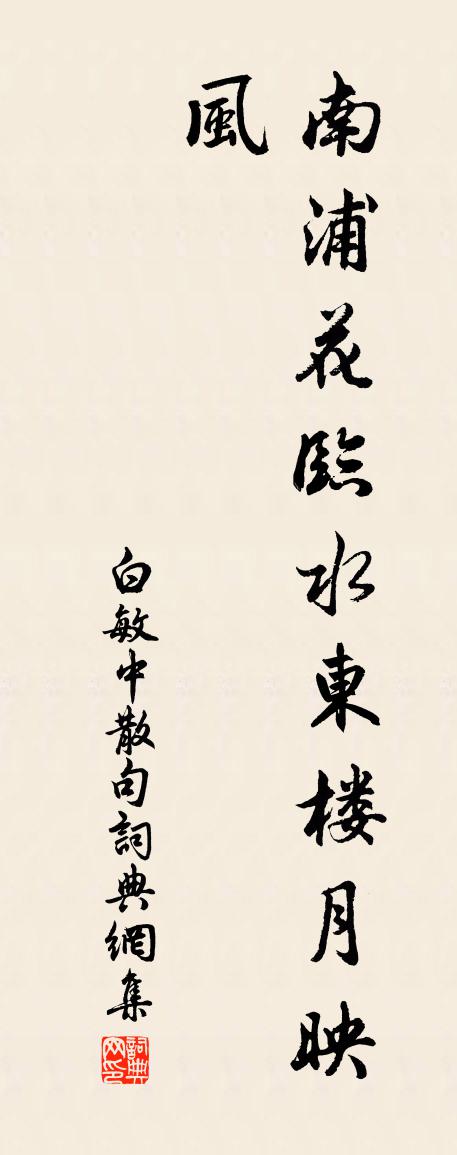 南浦花臨水東楼月映
風
白敏中散句詞典網集
詞典网印